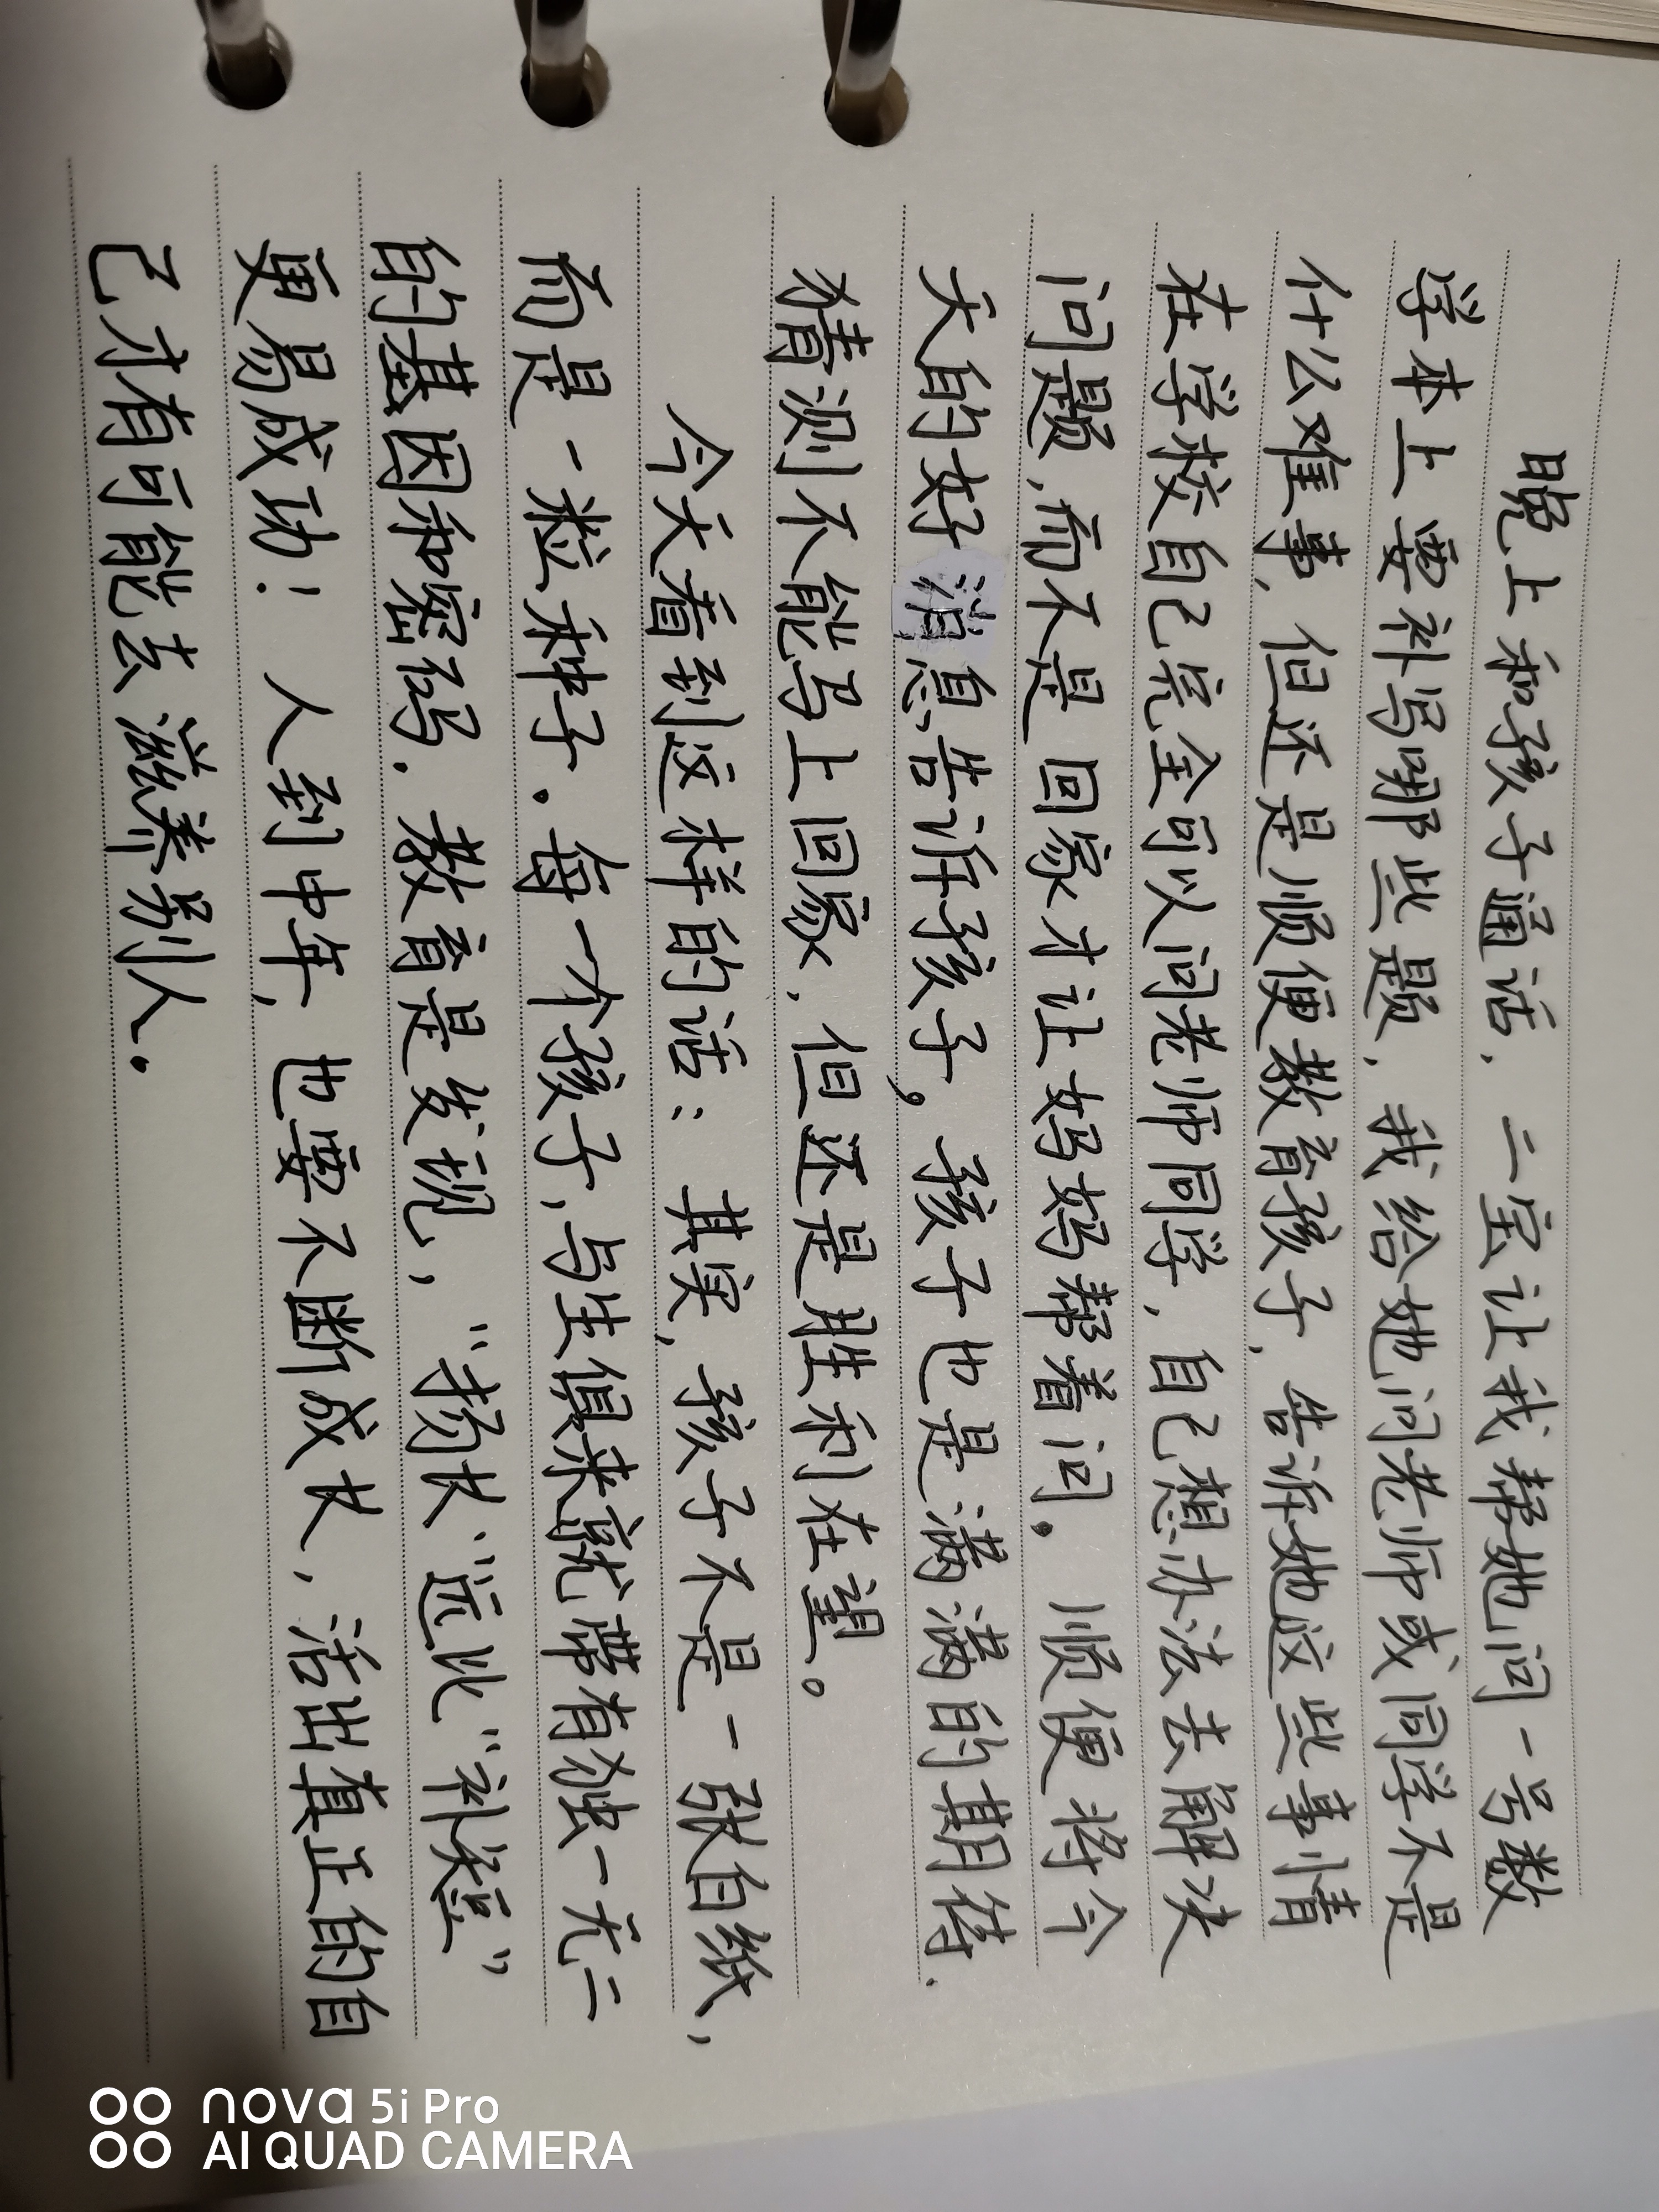 晚上和孩子通话，二宝让我帮她问一号数
学本上要补写哪些题，我给她问老师或同学不是
什么难事，但还是顺便教育孩子，告诉她这些事情
在学校自己完全可以问老师同学，自己想办法去解决
问题，而不是回家才让妈妈帮着问。顺便将今
天的好消息告诉孩子，孩子也是满满的期待.
猜测不能马上回家，但还是胜利在望。
今天看到这样的话：其实，孩子不是一张白纸，
而是一粒种子。每一个孩子，与生俱来就带有独一无二
的基因和密码．教育是发现，“扬长”远比“补短”
更易成功！人到中年，也要不断成长，活出真正的自
己才有可能去滋养别人．
nova 5i Pro
AI QUAD CAMERA